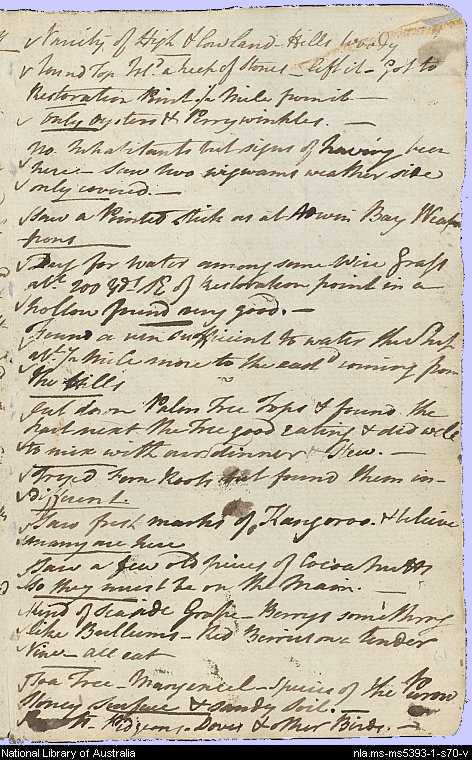 Variety of High & lowland Hills woody
Found Top Isl.d a heap of Stones - left it - Got to
Restoration Point ¼ Mile from it -
only Oysters & Perrywinkles. -
No Inhabitants but signs of having been
here - Saw two wigwams weather side
only covered. -
Saw a Pointed Stick as at Adven. Bay Weap
pons
Dug for water among some Wire Grass
abt. 200 Yds. of Restoration point in a
hollow found very good. -
Found a run sufficient to water the Ship
abt. ½ Mile more to the eastd. coming from
the Hills
Cut down Palm Tree Tops & found the
part next the Tree good eating & did well
to mix with our dinner Stew. -
Tryed Fern Roots but found them in-
different.
Saw fresh marks of Kangaroo & believe
many are here
Saw a few old pieces of Cocoa Nutts
so they must be on the Main. -
Kind of Seaside Grape - Berrys something
like Bullums - Red Berries on a tender
Vine - all eat
Toa Tree - Mangeneel - Species of the
Stoney surface & sandy Soil. -
Pidgeons - Doves & other Birds. -
National Library of Australia
nla.ms-ms5393-1-s70-v